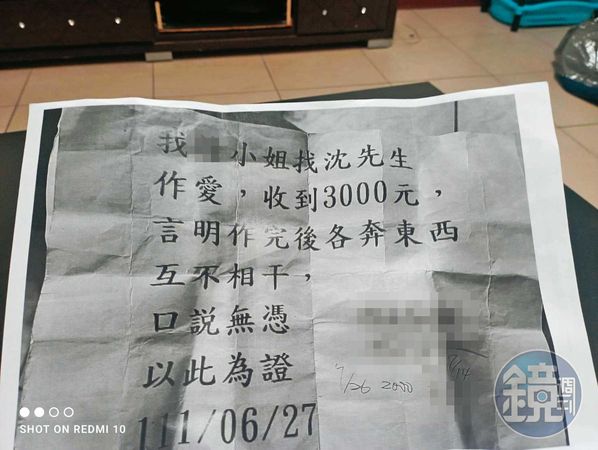 找 小姐找沈先生
作愛，收到3000元，
言明作完後各奔東西
互不相干，
口說無憑
以此為證
7/26 2000
111/06/27
鏡週刊
SHOT ON REDMI 10